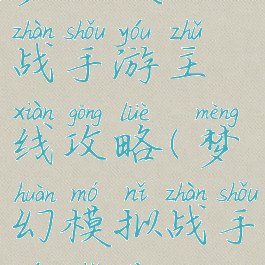 zhàn shǒu yóu zhǔ
战手游主
xiàn gōng lüè mèng
线攻略(梦
huàn mó nǐ zhàn shǒu
幻模拟战手